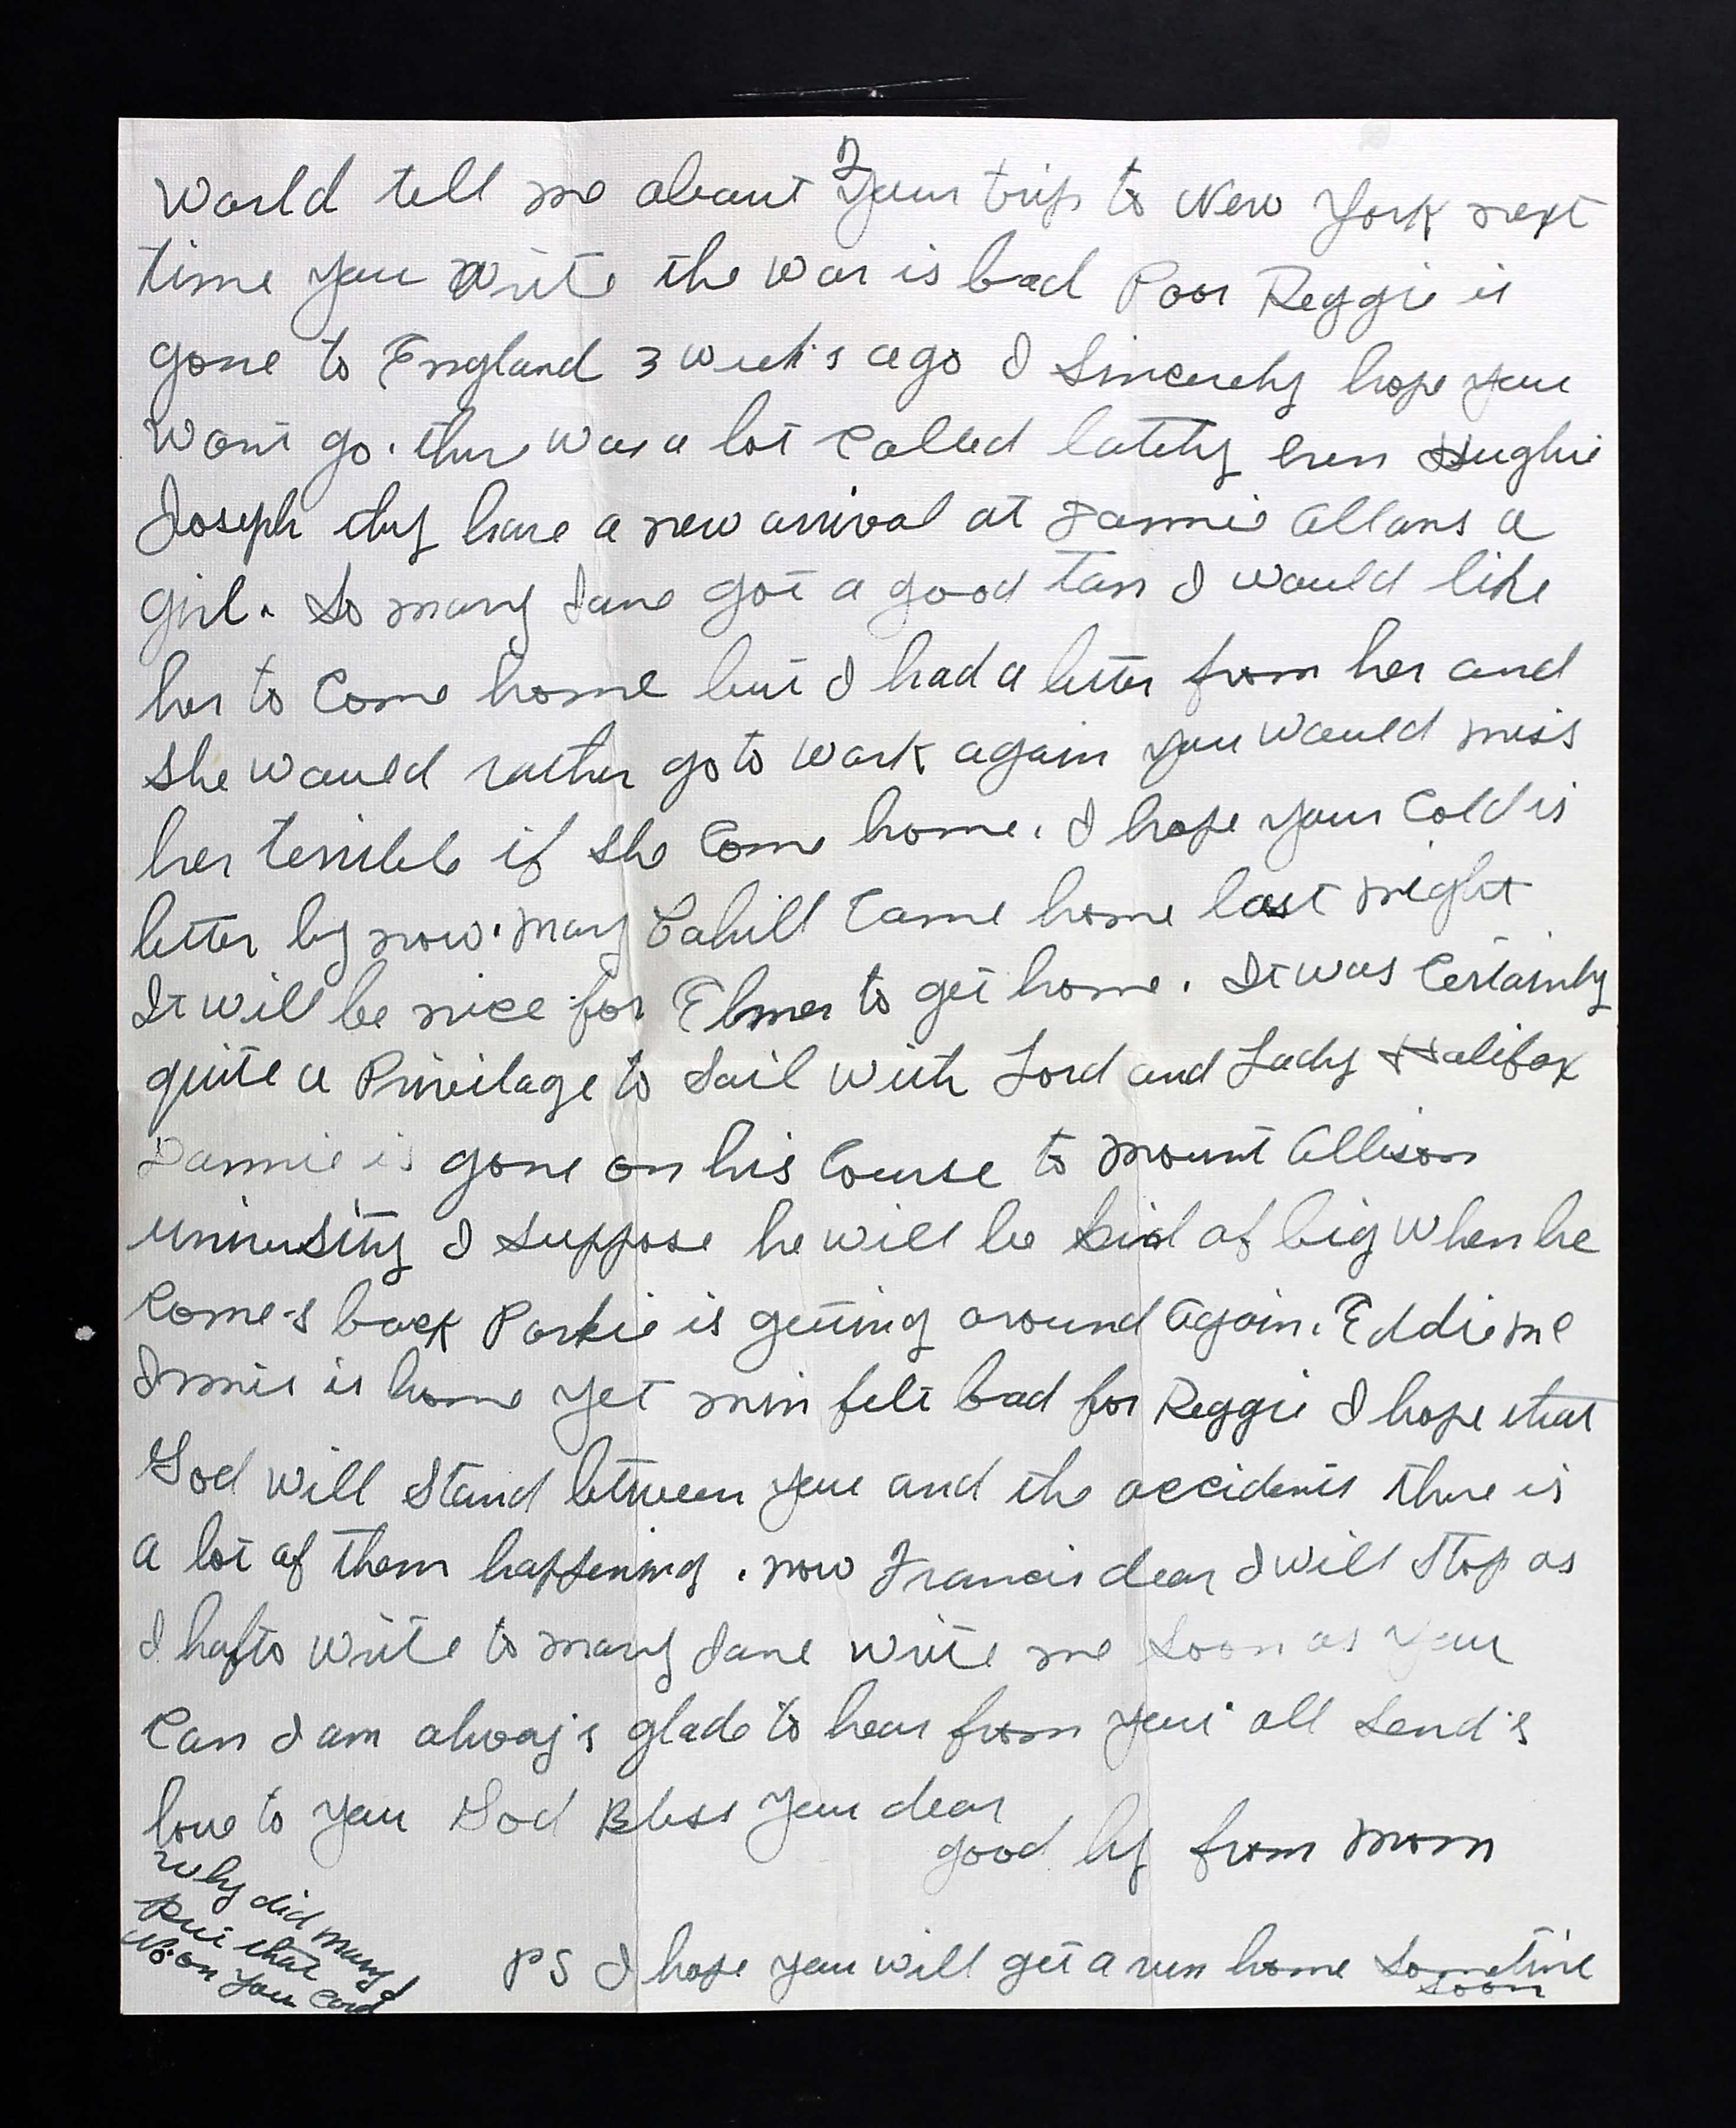 2
World tell me about your trip to New York next
time you write the war is bad Poor Reggie is
gone to England 3 week's ago I Sincerely hope you
wont go. ther was a lot Called lately even Hughie
Joseph they have a new arrival at Dannie Allans a
girl. So mary Jane got a good tan I would like
her to Come home but I had a letter from her and
she would rather go to work again you would miss
her terrible if she Come home. I hope your Cold is
better by now. Mary Cahill Came home last night
It will be nice for Elmer to get home. It was Certainly
quite a Privilage to Sail with Lord and Lady Halifax
Dannie is gone on his Course to Mount Allison
university I suppose he will be kind of big when he
Come-s back Parkie is getting around again. Eddie Mc
Innis is home yet min felt bad for Reggie I hope that
God will Stand between you and the accidents there is
a lot of them happening. now Francis dear I will Stop as
I hafto write to mary Jane write me soon as you
Can I am alway's glade to hear from you. all Send's
love to you God Bless you dear
good by from Mom
why did Mary J
put that
No. on your card
PS I hope you will get a run home Sometime
soon